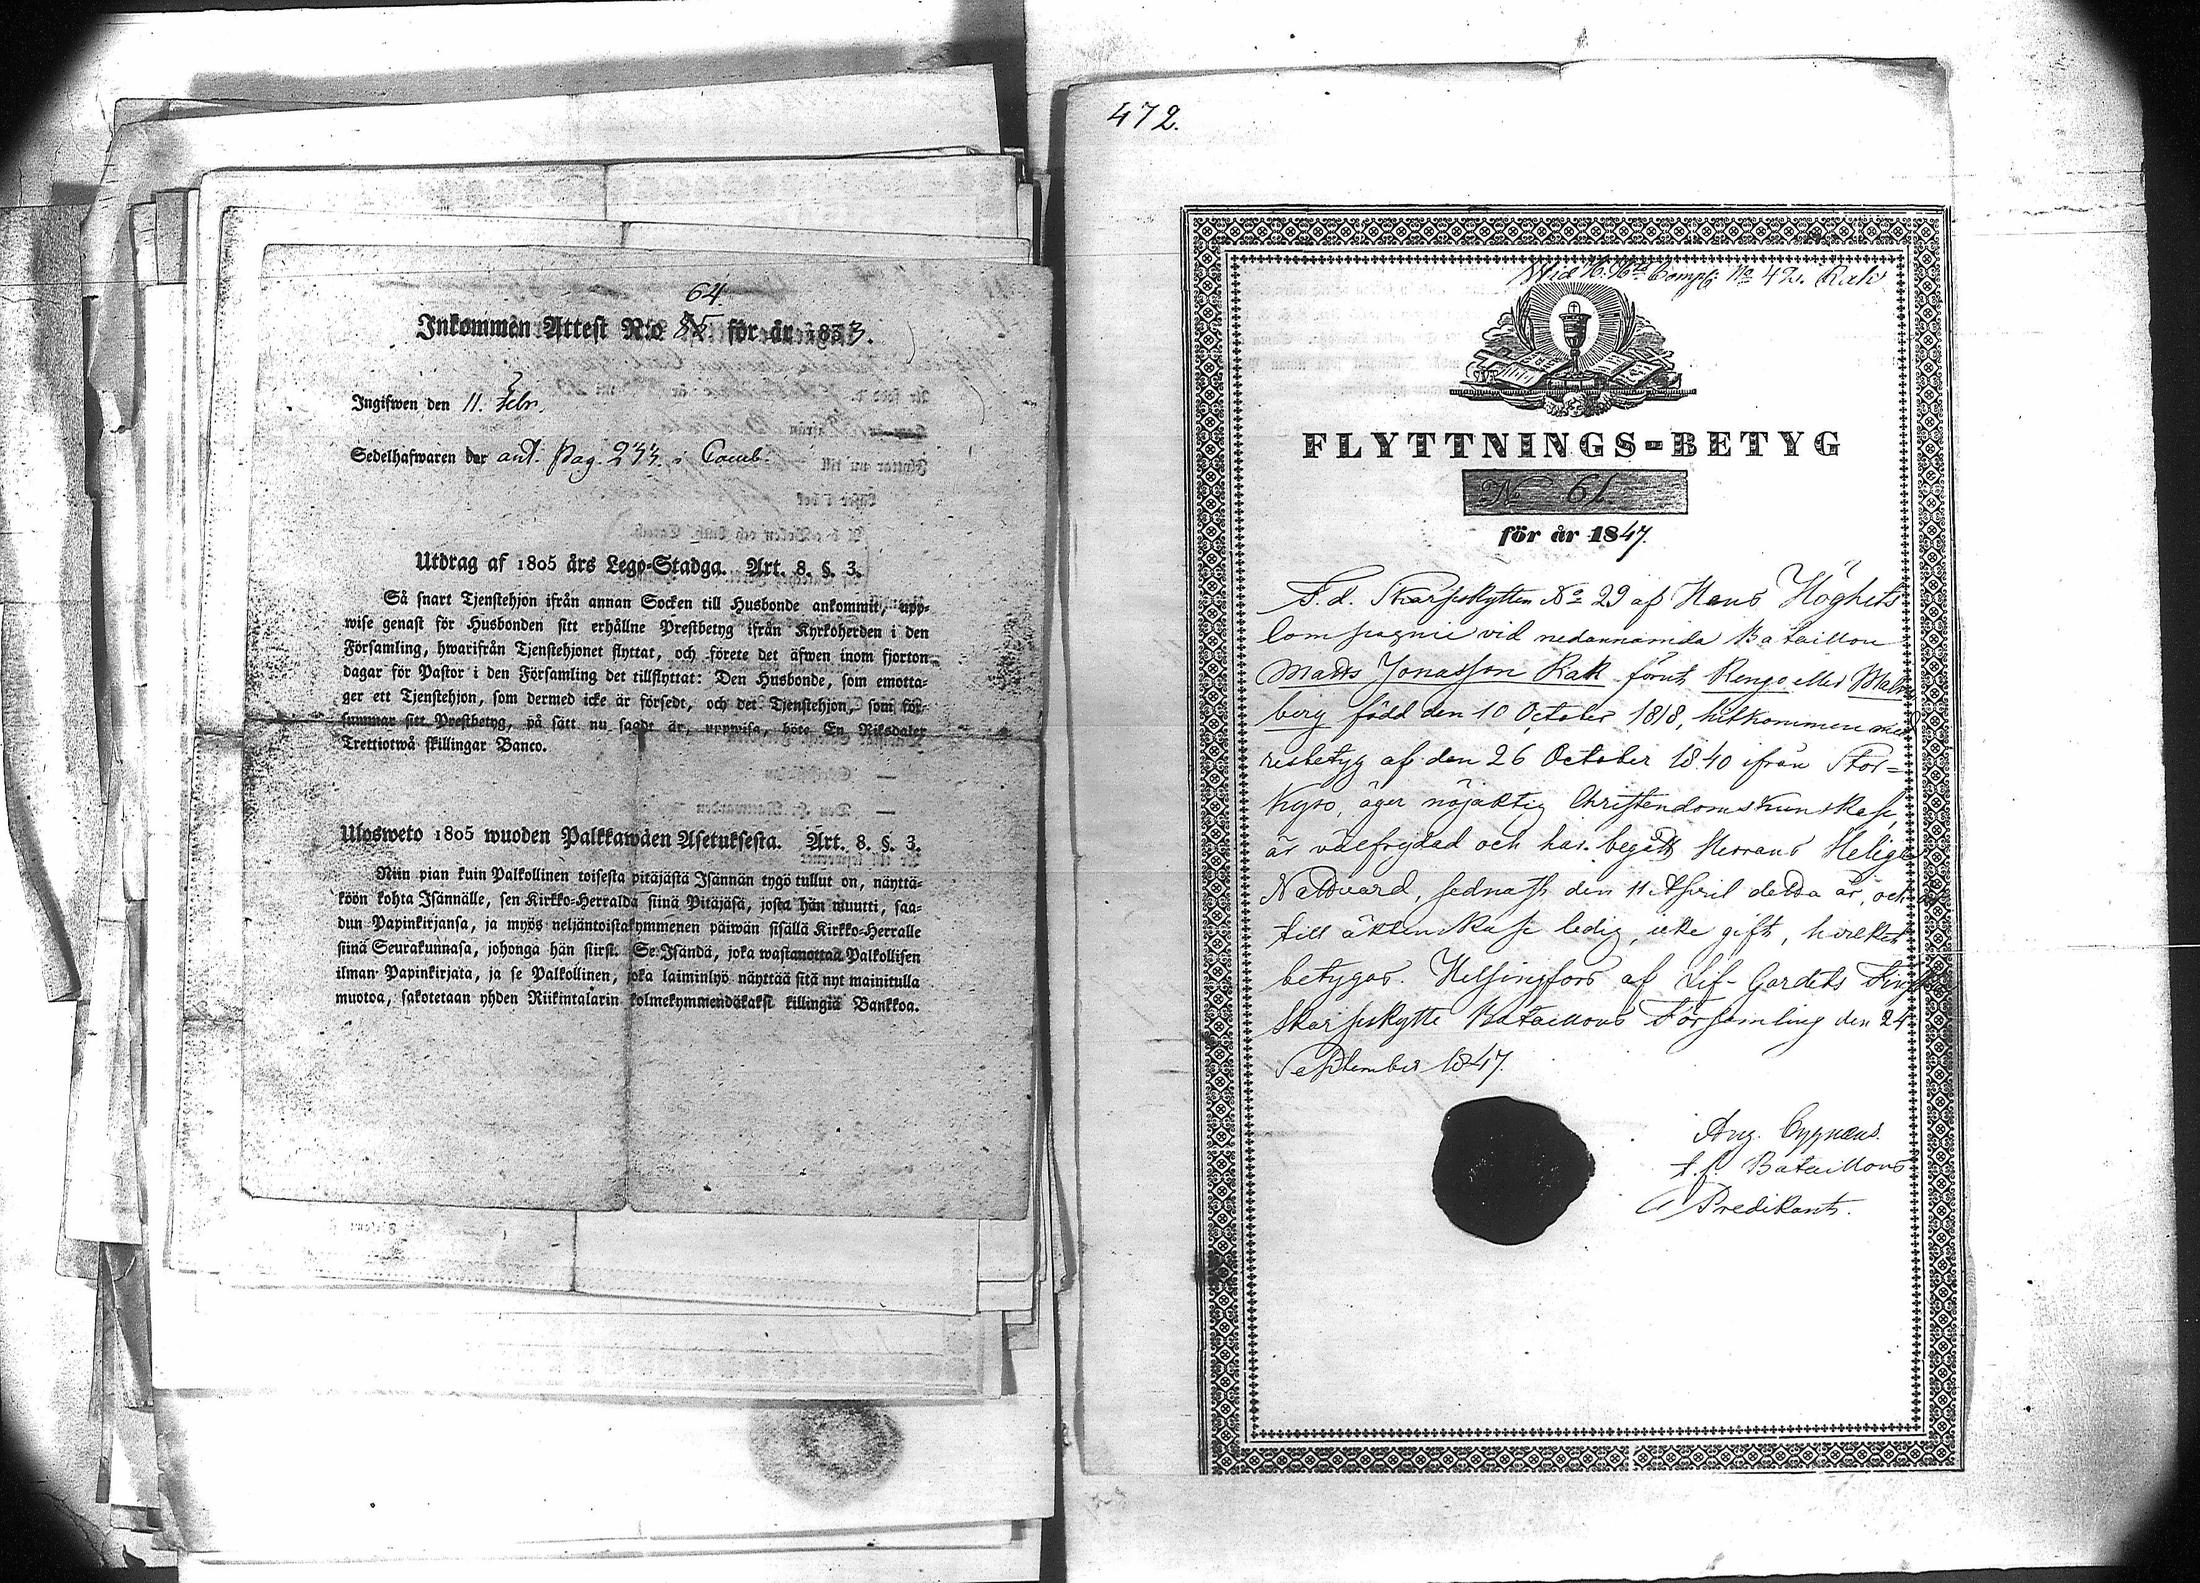 64.
Inkommen Attest N:o 55 för år 1833.
Ingifwen den 11. Febr.
Sedelhafwaren ant. Pag. 244. i Comb.
Utdrag af 1805 års Lego-Stadga. Art. 8. §. 3.
Så snart Tjenstehjon ifrån annan Socken till Husbonde ankommit, upp-
wise genast för Husbonden sitt erhållne Prestbetyg ifrån Kyrkoherden i den
Församling, hwarifrån Tjenstehjonet flyttat, och förete det äfwen inom fjorton
dagar för Pastor i den Församling det tillflyttat: Den Husbonde, som emotta-
ger ett Tjenstehjon, som dermed icke är försedt, och det Tjenstehjon, som för-
summar sitt Prestbetyg, på sätt nu sagdt är, uppwisa, böte En Riksdaler
Trettiotwå skillingar Banco.
Ulosweto 1805 wuoden Palkkawäen Asetuksesta. Art. 8. §. 3.
Niin pian kuin Palkollinen toisesta pitäjästä Isännän tygö tullut on, näyttä-
köön kohta Isännälle, sen Kirkko-Herralda siinä Pitäjäsä, josta hän muutti, saa-
dun Papinkirjansa, ja myös neljäntoistakymmenen päiwän sisällä Kirkko-Herralle
siinä Seurakunnasa, johonga hän siirst. Se Isändä, joka wastanottaa Palkollisen
ilman Papinkirjata, ja se Palkollinen, joka laiminlyö näyttää sitä nyt mainitulla
muotoa, sakotetaan yhden Riikintalarin kolmekymmendäkaksi killingiä Bankkoa.
472.
Wid Comp. No 42. Rak
FLYTTNINGS-BETYG
No 61.
för år 1847.
F. d. Skarpskytten No 29 af Hans Höghets
Compagnie vid nedannämda Bataillon
Matts Jonasson Rak förut Rengo eller Malm
berg född den 10 October 1818, hitkommen med
resbetyg af den 26 October 1840 ifrån Stor-
Kyro, äger nöjaktig Christendomskunskap,
är välfrejdad och har begått Herrans Helige
Nattvard, sednast den 11 April detta år, och är
till äktenskap ledig, icke gift, hvilket
betygas. Helsingfors af Lif-Gardets Finska
Skarpskytte Bataillons Församling den 24
September 1847.
Aug. Cygnæus.
t. f. Bataillons
Predikant.